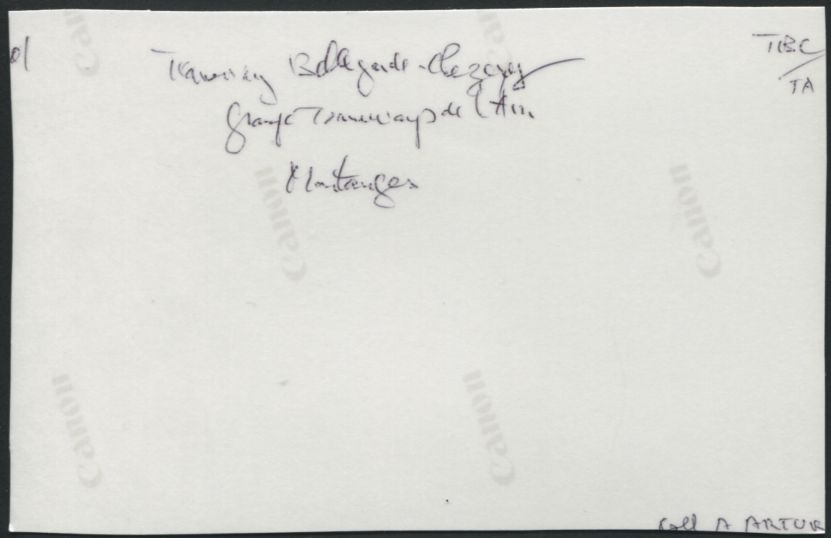 01
TBC
TA
Tramway Bellegarde-Chezery
groupe Tramways de l'Ain
Montanges
Canon
Canon
Canon
Canon
Canon
Canon
Coll A ARTUR